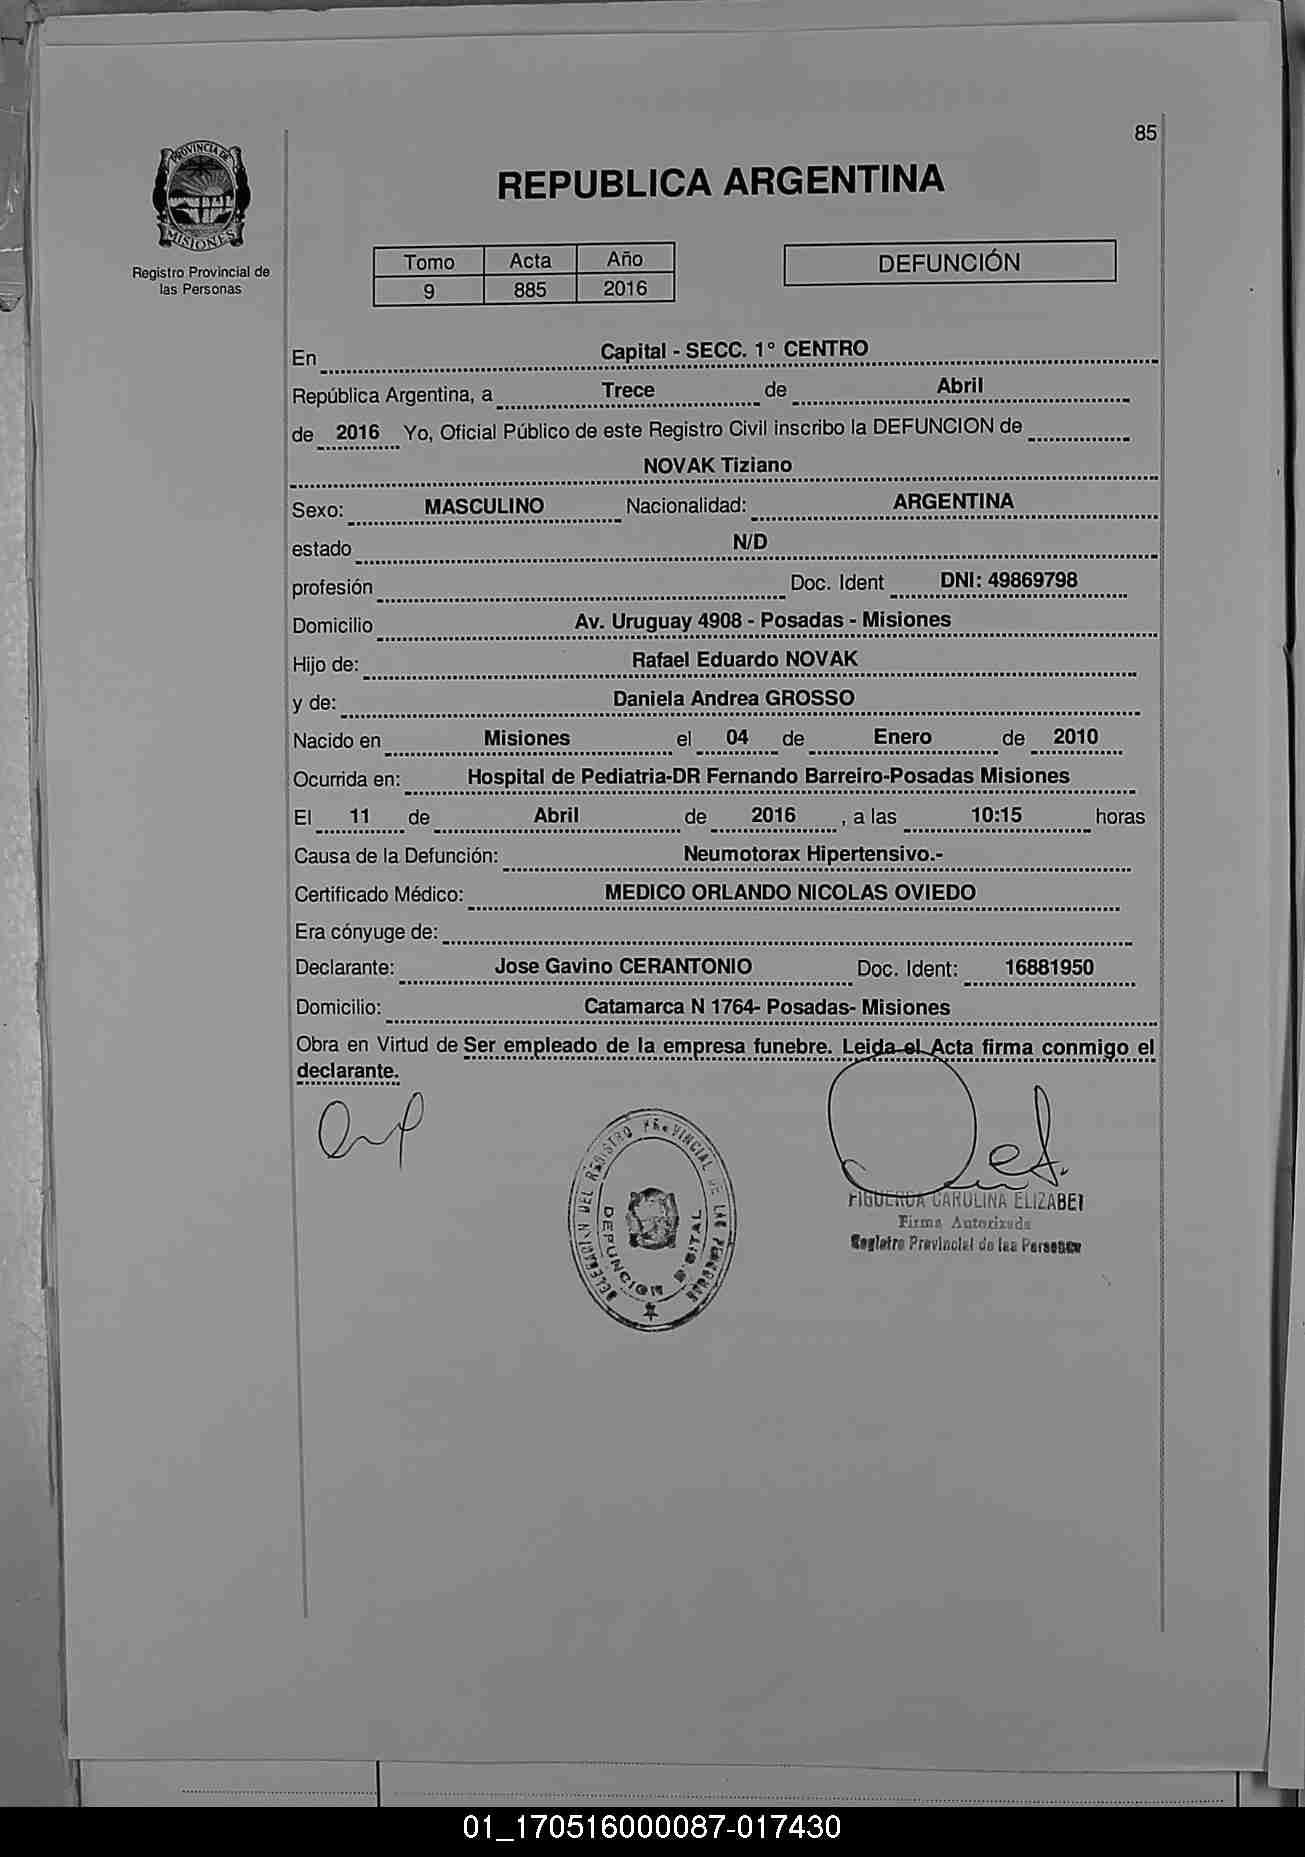 85
PROVINCIA DE
MISIONES
Registro Provincial de
las Personas
REPUBLICA ARGENTINA
Tomo Acta Año
9 885 2016
DEFUNCIÓN
En Capital - SECC. 1° CENTRO
República Argentina, a Trece de Abril
de 2016 Yo, Oficial Público de este Registro Civil inscribo la DEFUNCION de
NOVAK Tiziano
Sexo: MASCULINO Nacionalidad: ARGENTINA
estado N/D
profesión Doc. Ident DNI: 49869798
Domicilio Av. Uruguay 4908 - Posadas - Misiones
Hijo de: Rafael Eduardo NOVAK
y de: Daniela Andrea GROSSO
Nacido en Misiones el 04 de Enero de 2010
Ocurrida en: Hospital de Pediatria-DR Fernando Barreiro-Posadas Misiones
El 11 de Abril de 2016 , a las 10:15 horas
Causa de la Defunción: Neumotorax Hipertensivo.-
Certificado Médico: MEDICO ORLANDO NICOLAS OVIEDO
Era cónyuge de:
Declarante: Jose Gavino CERANTONIO Doc. Ident: 16881950
Domicilio: Catamarca N 1764- Posadas- Misiones
Obra en Virtud de Ser empleado de la empresa funebre. Leida el Acta firma conmigo el
declarante.
DELEGACION DEL REGISTRO PROVINCIAL DE LAS PERSONAS
DEFUNCION DIGITAL
FIGUEROA CAROLINA ELIZABET
Firma Autorizada
Registro Provincial de las Personas
01_170516000087-017430